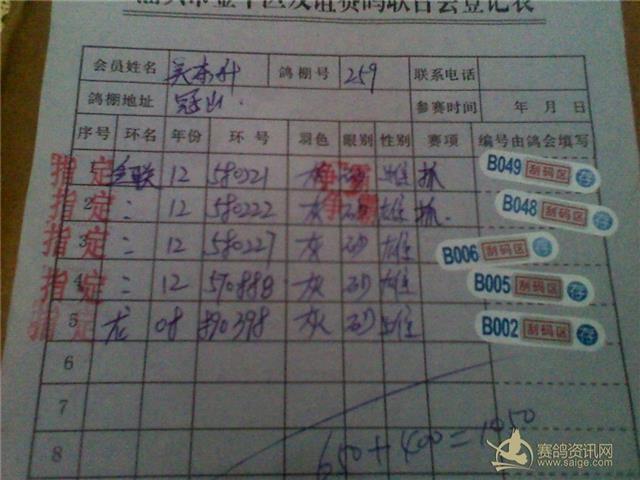 汕头市金平区友谊赛鸽联合会登记表
会员姓名 鸽棚号 259 联系电话
鸽棚地址 冠山. 参赛时间 年 月 日
序号 环名 年份 环 号 羽色 眼别 性别 赛项 编号由鸽会填写
指定 1 12 580221 砂 雄 抓 B049 刮码区 存
指定 2 〃 12 580222 灰 砂 雄 抓. B048 刮码区 存
指定 3 〃 12 580227 灰 砂 雄 B006 刮码区 存
指定 4 〃 12 570888 灰 砂 雄 B005 刮码区 存
指定 5 龙 08 890398 灰 砂 雄 B002 刮码区 存
6
7
8 650+400=1050
赛鸽资讯网
www.saige.com